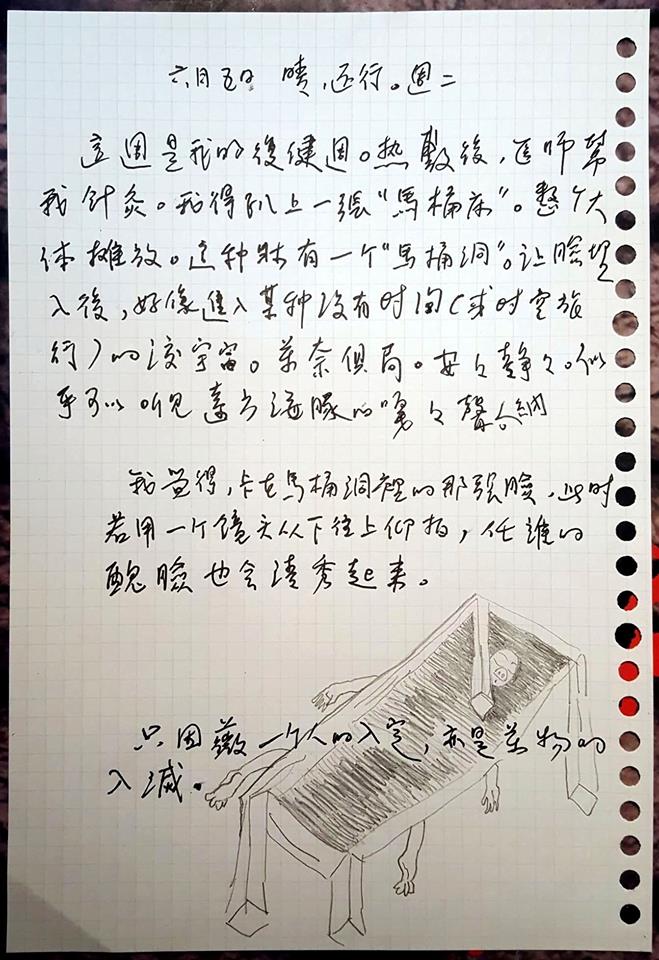 六月五日 晴，还行。週二
這週是我的復健週。热敷後，医师幫
我針灸。我得趴上一張“馬桶床”。整个人
体摊放。这种床有一个“馬桶洞”。让臉埋
入後，好像進入某种没有时间（或时空旅
行）的渡宇宙。萬奈俱局。安々靜々。似
乎可以听见 海豚的 々聲納
我覚得，卡在馬桶洞裡的那張臉，此时
若用一个鏡头从下往上仰拍，任誰的
醜臉也会清秀起来。
只因 一个人的入定，亦是萬物的
入滅。